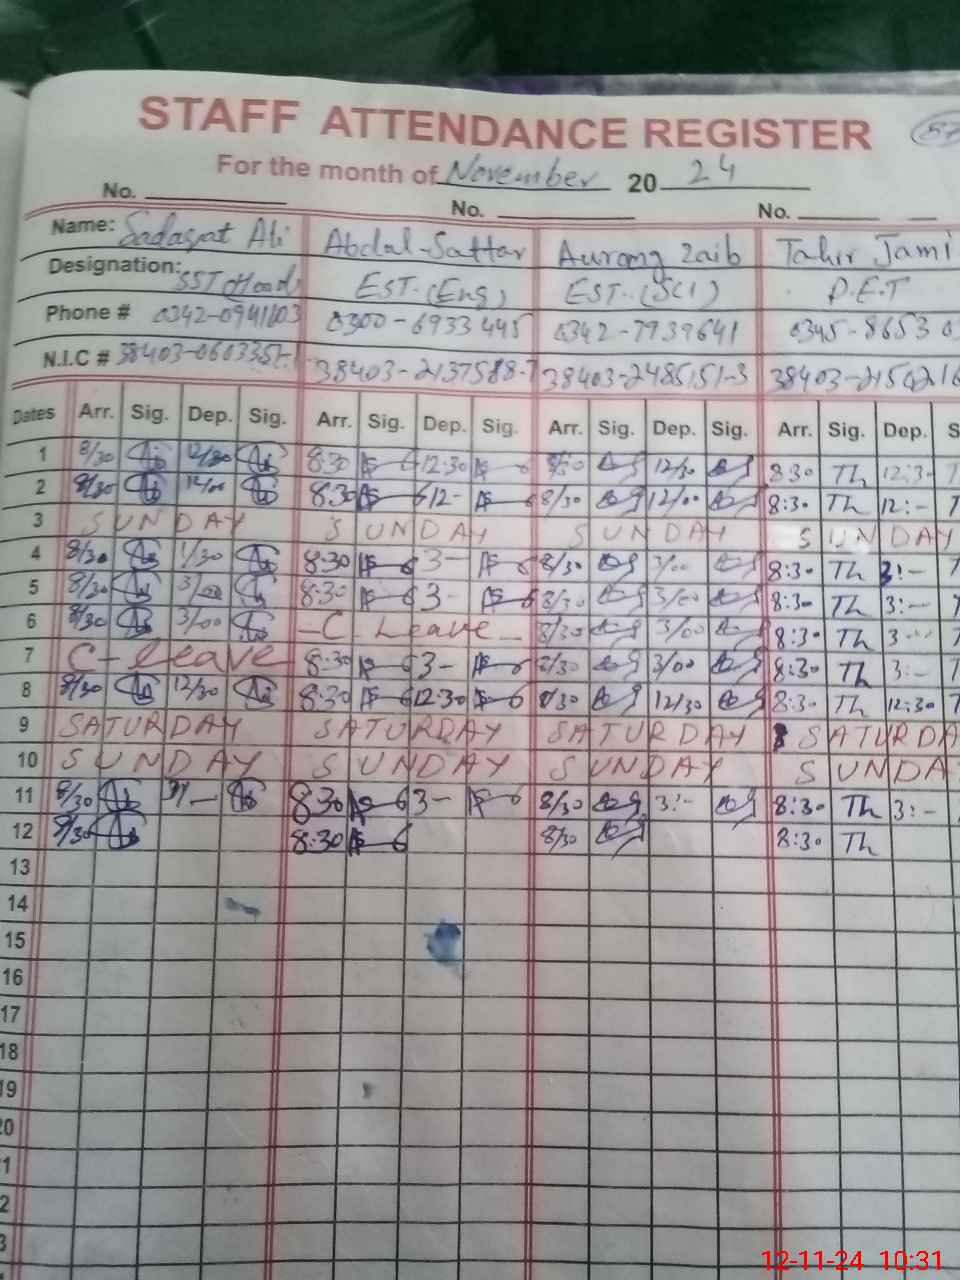 STAFF ATTENDANCE REGISTER
For the month of November 20 24
No. No. No.
Name: Sadaqat Ali Abdal-Sattar Aurang Zaib Tahir Jami
Designation: SST Head EST.(Eng) EST..(SCI) P.E.T
Phone # 0342-0941103 0300-6933445 0342-7739641 0345-8653 0
N.I.C # 38403- 38403-2137588-7 38403-2485151-3 38403-
Dates Arr. Sig. Dep. Sig. Arr. Sig. Dep. Sig. Arr. Sig. Dep. Sig. Arr. Sig. Dep. S
1 8/30 12/30 8:30 12:30 8/30 12/30 8:30 Th 12:3
2 8/30 12/00 8:30 12- 8/30 12/00 8:30 Th 12:-
3 SUNDAY SUNDAY SUNDAY SUNDAY
4 8/30 1/30 8:30 3- 8/30 3/00 8:30 Th 3:-
5 8/30 3/00 8:30 3- 8/30 3/00 8:30 Th 3:-
6 8/30 3/00 -C-Leave- 8/30 3/00 8:30 Th 3
7 C-leave 8:30 3- 8/30 3/00 8:30 Th 3:-
8 8/30 12/30 8:30 12:30 8/30 12/30 8:30 Th 12:30
9 SATURDAY SATURDAY SATURDAY SATURDA
10 SUNDAY SUNDAY SUNDAY SUNDA
11 8/30 8:30 3- 8/30 3:- 8:30 Th 3:-
12 8/30 8:30 8/30 8:30 Th
13
14
15
16
17
18
19
20
1
2
3
12-11-24 10:31